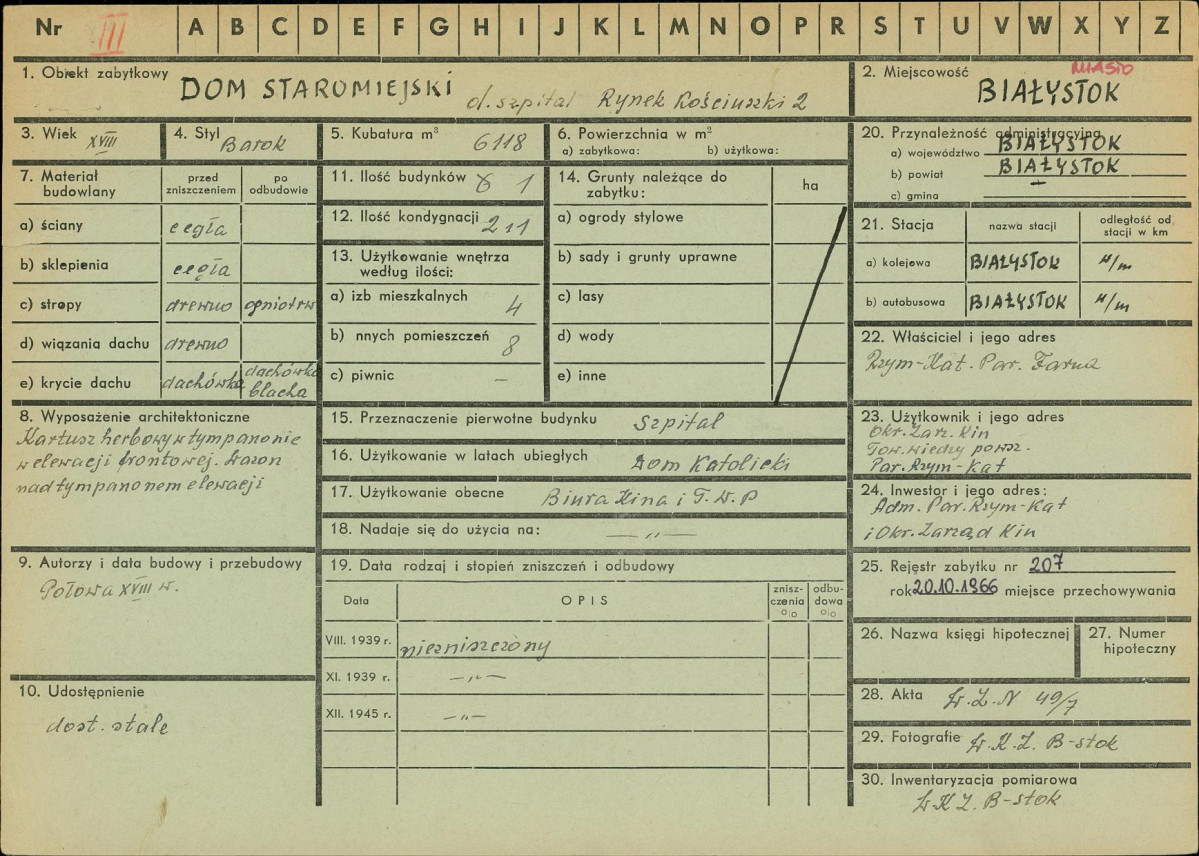 Nr III A B C D E F G H I J K L M N O P R S T U V W X Y Z
1. Obiekt zabytkowy DOM STAROMIEJSKI d. szpital Rynek Kościuszki 2
2. Miejscowość MIASTO
BIAŁYSTOK
3. Wiek XVIII
4. Styl Barok
5. Kubatura m³ 6118
6. Powierzchnia w m²
a) zabytkowa: b) użytkowa:
7. Materiał budowlany
przed zniszczeniem
po odbudowie
a) ściany cegła
b) sklepienia cegła
c) stropy drewno ogniotrw
d) wiązania dachu drewno
e) krycie dachu dachówka dachówka blacha
8. Wyposażenie architektoniczne
Kartusz herbowy w tympanonie
w elewacji frontowej. Wazon
nad tympanonem elewacji
9. Autorzy i data budowy i przebudowy
Połowa XVIII w.
10. Udostępnienie
dost. stale
11. Ilość budynków 1
12. Ilość kondygnacji 2+1
13. Użytkowanie wnętrza
według ilości:
a) izb mieszkalnych 4
b) nnych pomieszczeń 8
c) piwnic –
14. Grunty należące do
zabytku:
ha
a) ogrody stylowe
b) sady i grunty uprawne
c) lasy
d) wody
e) inne
15. Przeznaczenie pierwotne budynku Szpital
16. Użytkowanie w latach ubiegłych Dom Katolicki
17. Użytkowanie obecne Biura Kina i T.W.P
18. Nadaje się do użycia na: — „ —
19. Data rodzaj i stopień zniszczeń i odbudowy
Data OPIS znisz-czenia o|o odbu-dowa o|o
VIII. 1939 r. niezniszczony
XI. 1939 r. — „ —
XII. 1945 r. — „ —
20. Przynależność administracyjna
a) województwo BIAŁYSTOK
b) powiat BIAŁYSTOK
c) gmina —
21. Stacja nazwa stacji odległość od stacji w km
a) kolejowa BIAŁYSTOK w/m
b) autobusowa BIAŁYSTOK w/m
22. Właściciel i jego adres
Rzym-Kat. Par. Farna
23. Użytkownik i jego adres
Okr. Zarz. Kin
Tow. wiedzy powsz.
Par. Rzym-Kat
24. Inwestor i jego adres:
Adm. Par. Rzym-Kat
i Okr. Zarząd Kin
25. Rejestr zabytku nr 207
rok 20.10.1966 miejsce przechowywania
26. Nazwa księgi hipotecznej
27. Numer
hipoteczny
28. Akta W.Z.N 49/7
29. Fotografie W.K.Z. B-stok
30. Inwentaryzacja pomiarowa
W K Z. B-stok